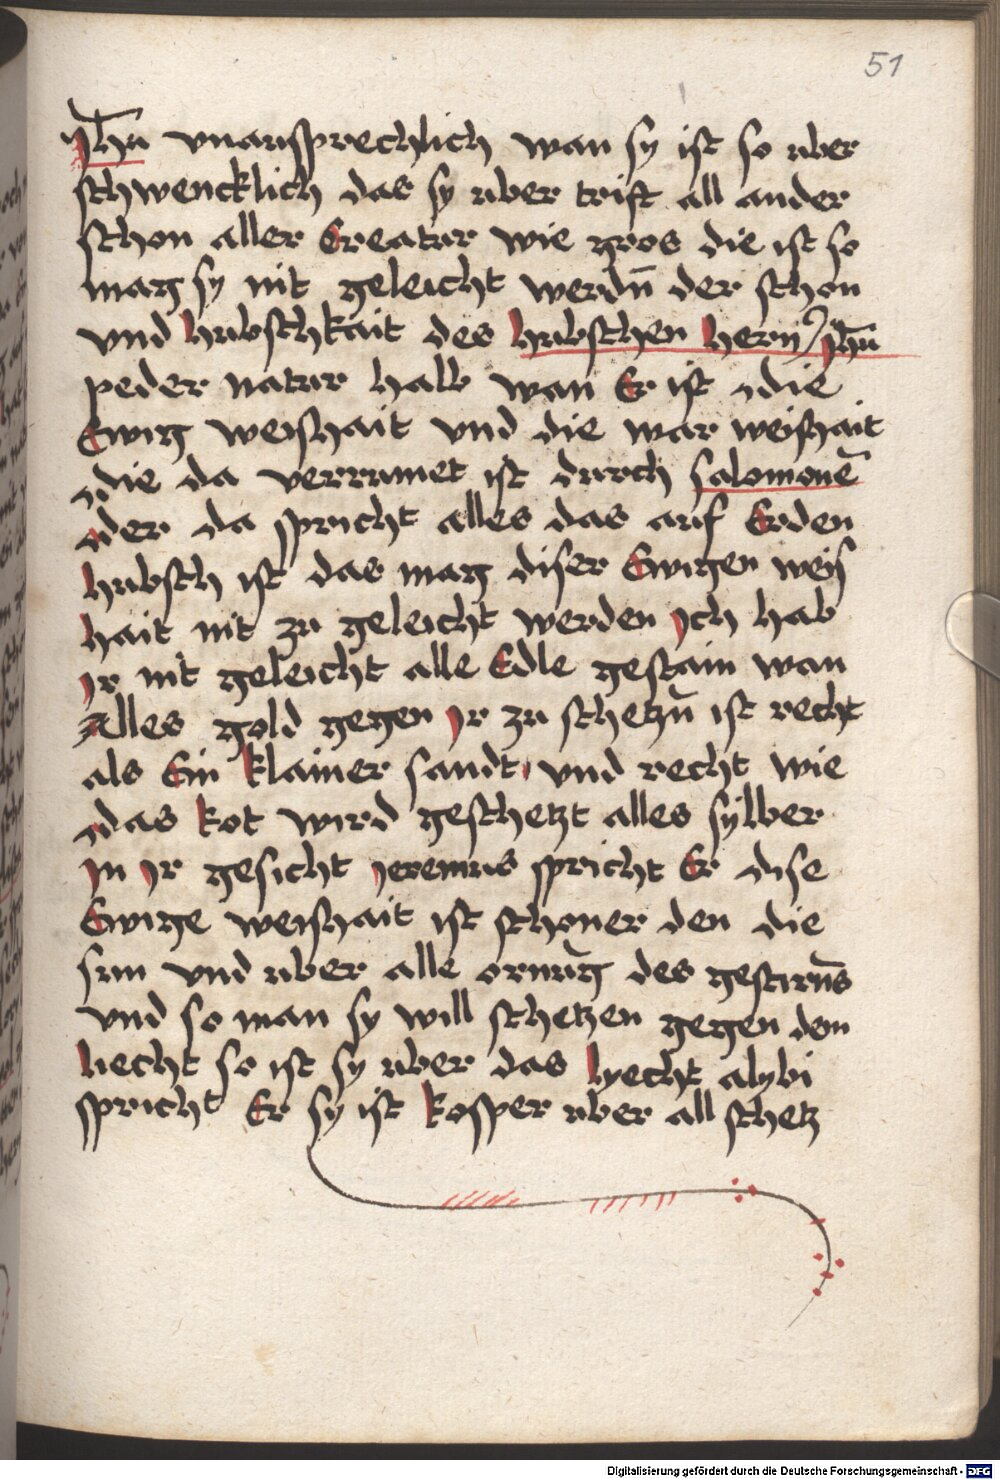 51
Jhũ vnausprechlich wan sy ist so uber
schwencklich das sy uber trift all ander
schon aller Creatur wie gros die ist so
mag sy nit geleicht werdn̄ der schon
vnd hubschkait des hubschen hern Jhũ
peder natur halb wan Er ist die
Ewig weishait vnd die war weishait
die da verrumet ist durch salomonē
der da spricht alles das auf Erden
hubsch ist das mag diser Ewigen weis
hait nit zu geleicht werden Jch hab
Jr nit geleicht alle Edle gestain wan
Alles gold gegen Jr zu schetzn̄ ist recht
als Ein klainer sandt vnd recht wie
das kot wird geschetzt alles sylber
Jn Jr gesicht Jeremias spricht Er dise
Ewige weishait ist schoner den die
sun vnd uber alle ornūg des gestirns
vnd so man sy will schetzen gegen dem
liecht so ist sy uber das lyecht alybi
spricht Er sy ist kosper uber all schetz
Digitalisierung gefördert durch die Deutsche Forschungsgemeinschaft - DFG